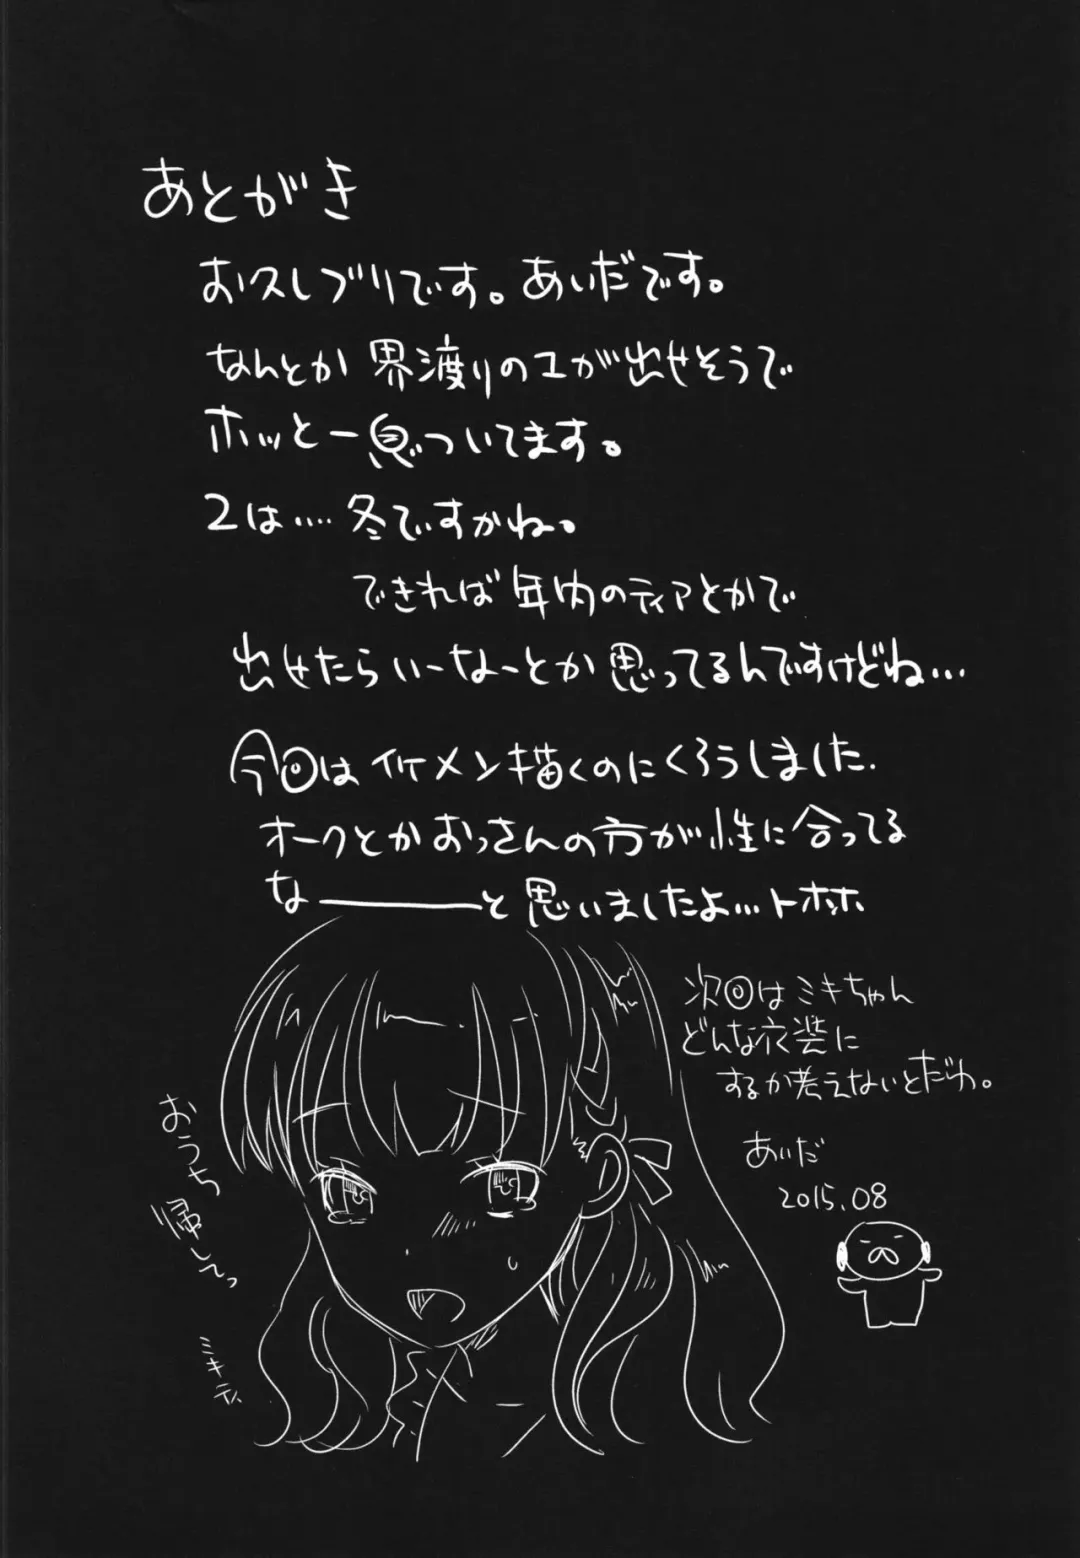 あとがき
お久しブリです。あいだです。
なんとか界渡りの1が出せそうで
ホッと一息ついてます。
2は‥‥冬ですかね。
できれば年内のティアとかで
出せたらいーなーとか思ってるんですけどね…
今回はイケメン描くのにくろうしました.
オークとかおっさんの方が性に合ってる
な――――と思いましたよ…トホホ
次回はミキちゃん
どんな衣装に
するか考えないとだわ。
あいだ
2015.08
おうち
帰してっ
ミキティ